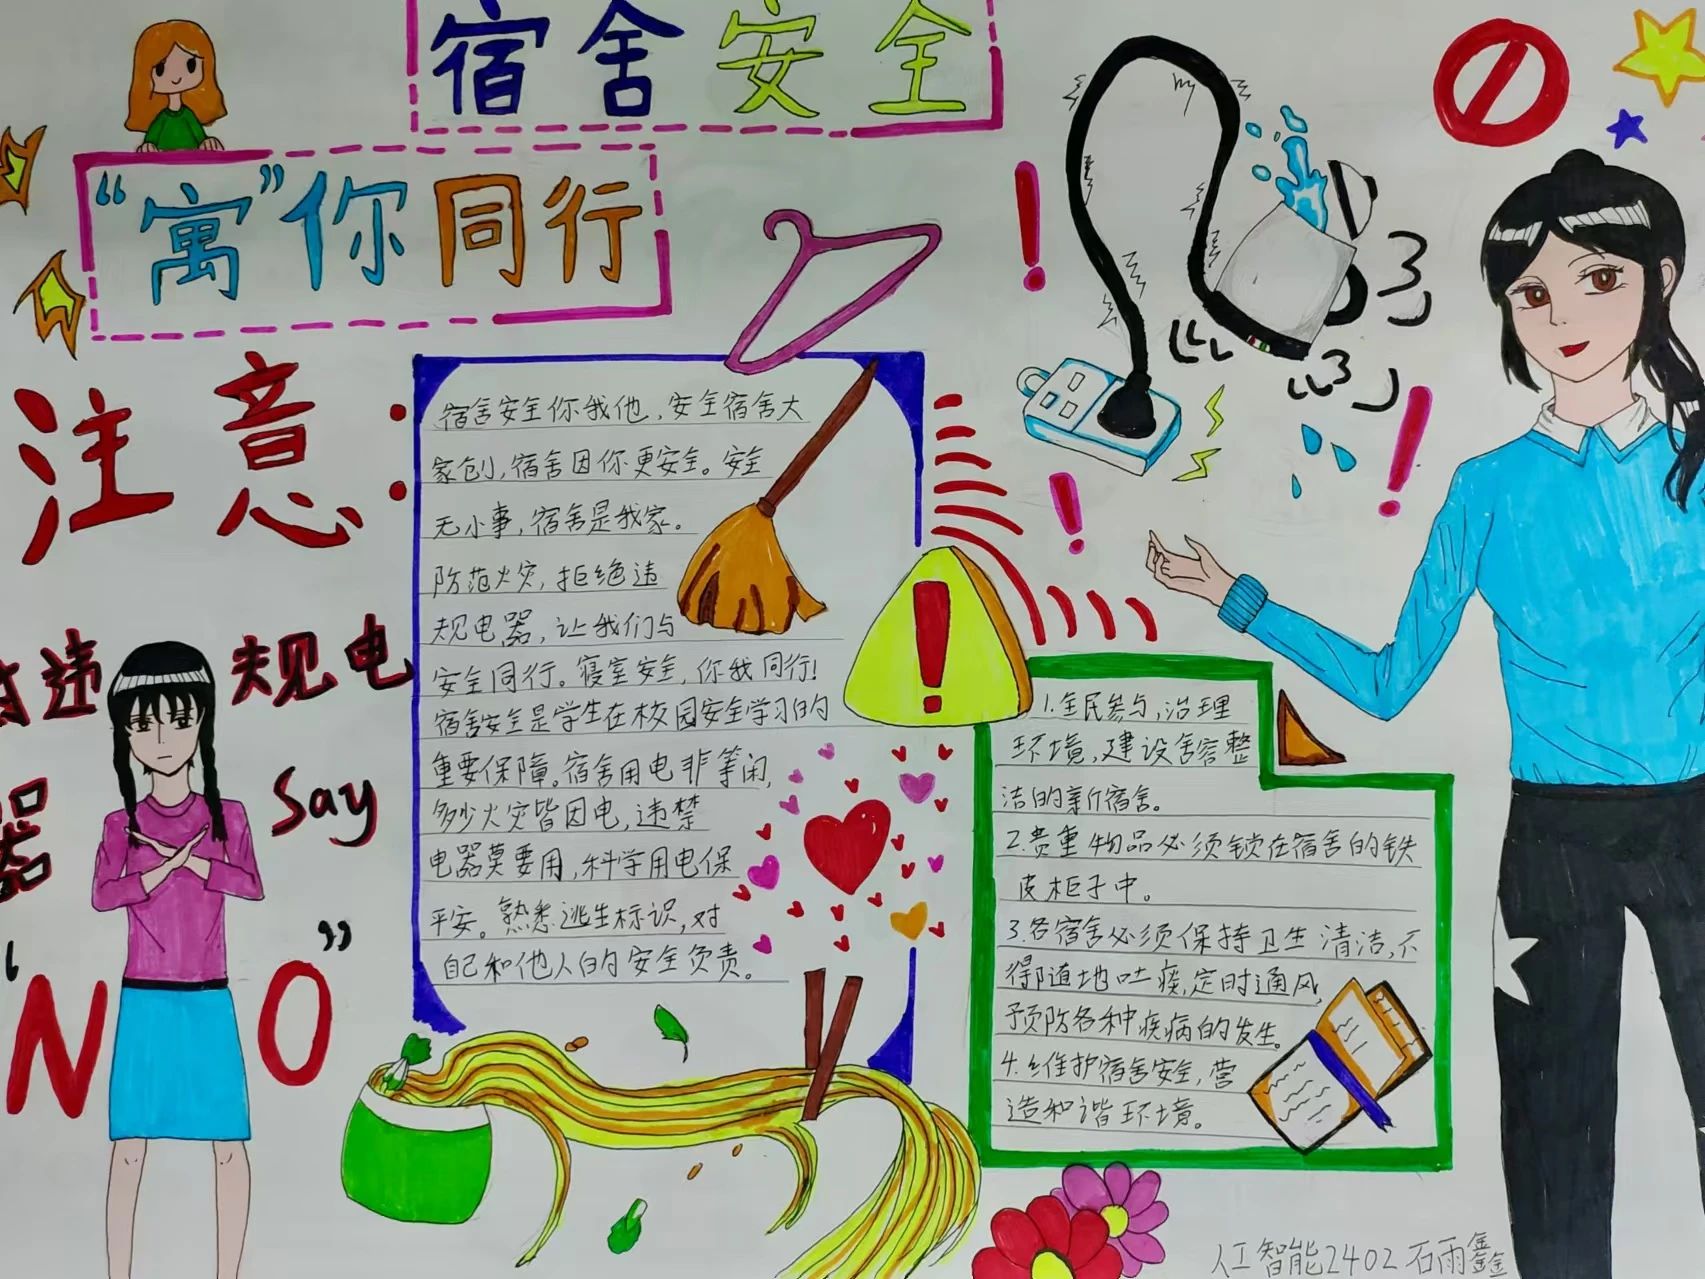 宿舍安全
“寓”你同行
注意:
对违规电
器 Say
“NO”
宿舍安全你我他,安全宿舍大
家创,宿舍因你更安全。安全
无小事,宿舍是我家。
防范火灾,拒绝违
规电器,让我们与
安全同行。寝室安全,你我同行!
宿舍安全是学生在校园安全学习的
重要保障。宿舍用电非等闲,
多少火灾皆因电,违禁
电器莫要用,科学用电保
平安。熟悉逃生标识,对
自己和他人的安全负责。
1.全民参与,治理
环境,建设舍容整
洁的新宿舍。
2.贵重物品必须锁在宿舍的铁
皮柜子中。
3.各宿舍必须保持卫生清洁,不
得随地吐痰,定时通风,
预防各种疾病的发生。
4.维护宿舍安全,营
造和谐环境。
人工智能2402 石雨鑫